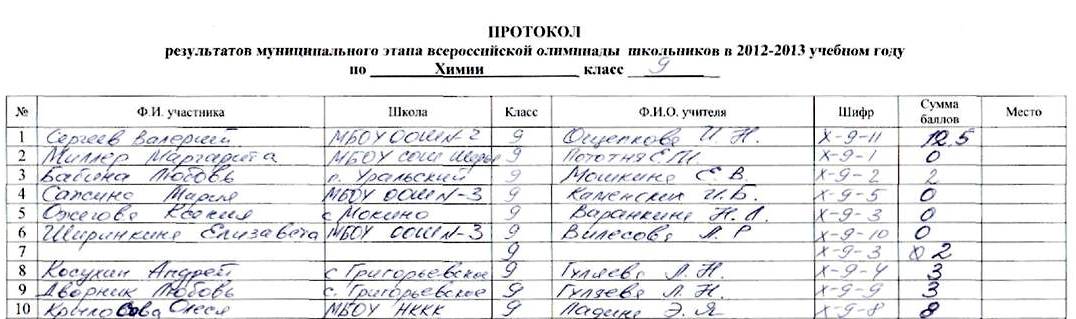 ПРОТОКОЛ
результатов муниципального этапа всероссийской олимпиады школьников в 2012-2013 учебном году
по Химии класс 9
№ Ф.И. участника Школа Класс Ф.И.О. учителя Шифр Сумма баллов Место
1 Сергеев Валерий МБОУ ООШ N-2 9 Ощепкова И. Н. Х-9-11 12.5
2 Миллер Маргарита МБОУ СОШ 9 Х-9-1 0
3 Бабина Любовь п. Уральский 9 Мошкина С. В. Х-9-2 2
4 Мария МБОУ ООШ N-3 9 Каменских И.Б. Х-9-5 0
5 Ожегова Ксения с Мокино 9 Варанкина Н. Х-9-3 0
6 Ширинкина Елизавета МБОУ ООШ N-3 9 Вилесова Л. Р Х-9-10 0
7 9 Х-9-3 2
8 Косухин Андрей с Григорьевское 9 Гуляева Л. Н. Х-9-4 3
9 Дворник Любовь с. Григорьевское 9 Гуляева Л. Н. Х-9-9 3
10 Крылосова Олеся МБОУ НККК 9 Падина Э. Я Х-9-8 8